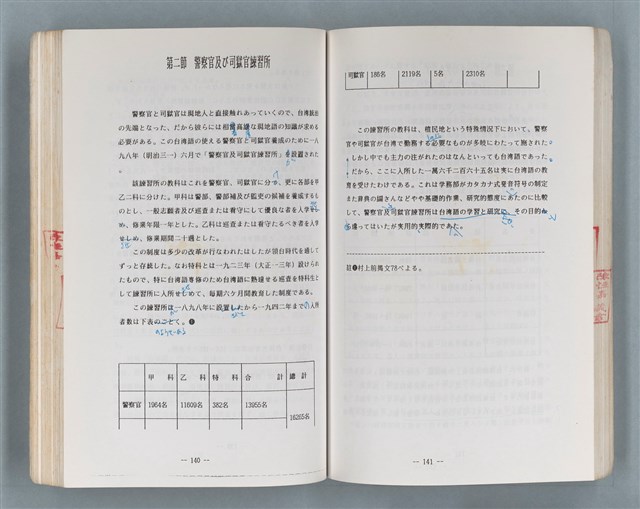 第二節 警察官及び司獄官練習所
警察官と司獄官は現地人と直接触れあっていくので、台湾統治
の先端となった、だから彼らには相當高雄な現地語の知識が求める
必要がある。この台湾語の使える警察官と司獄官養成のために一八
九八年（明治三一）六月で「警察官及司獄官練習所」を設置された
。
該練習所の教科はこれを警察官、司獄官に分つ、更に各部を甲
乙二科に分けた。甲科は警部、警部補及び監吏の候補を養成するも
のとし、一般志願者及び巡査または看守にして優良な者を入學せ
め、修業年限一年とした。乙科は巡査または看守たるべき者を入學
せしめ、修業期間二十週とした。
この制度は多少の改革が行なわれたはしたが領台時代を通して
ずっと存続した。なお特科とは一九二三年（大正一三年）設けられ
たもので、特に台湾語専修のため台湾語に熟達せる巡査を特科生と
して練習所に入所せしめて、毎期六ケ月間教育した制度である。
この練習所は一八九八年に設置したから一九四二年まで入所
者数は下表のごとく。❶
甲科 乙科 特科 合計 總計
警察官 1964名 11609名 382名 13955名
16265名
-- 140 --
司獄官 186名 2119名 5名 2310名
この練習所の教科は、植民地という特殊情況下において、警察
官や司獄官が台湾で勤務する必要なものが多岐にわたって施された
しかし中でも主力の注がれたのはなんといっても台湾語であった
だから、ここに入所した一萬六千二百六十五名は実に台湾語の教
育を受けたわけである。これは学務部がカタカナ式発音符号の制定
また辞典の編さんなどやや基礎的作業、研究的態度にあたのに比較
して、警察官及司獄官練習所は台湾語の学習と研究に、その目的も
違ってはいたが実用的実際的であった。
註❶村上前揭文78ぺよる。
-- 141 --